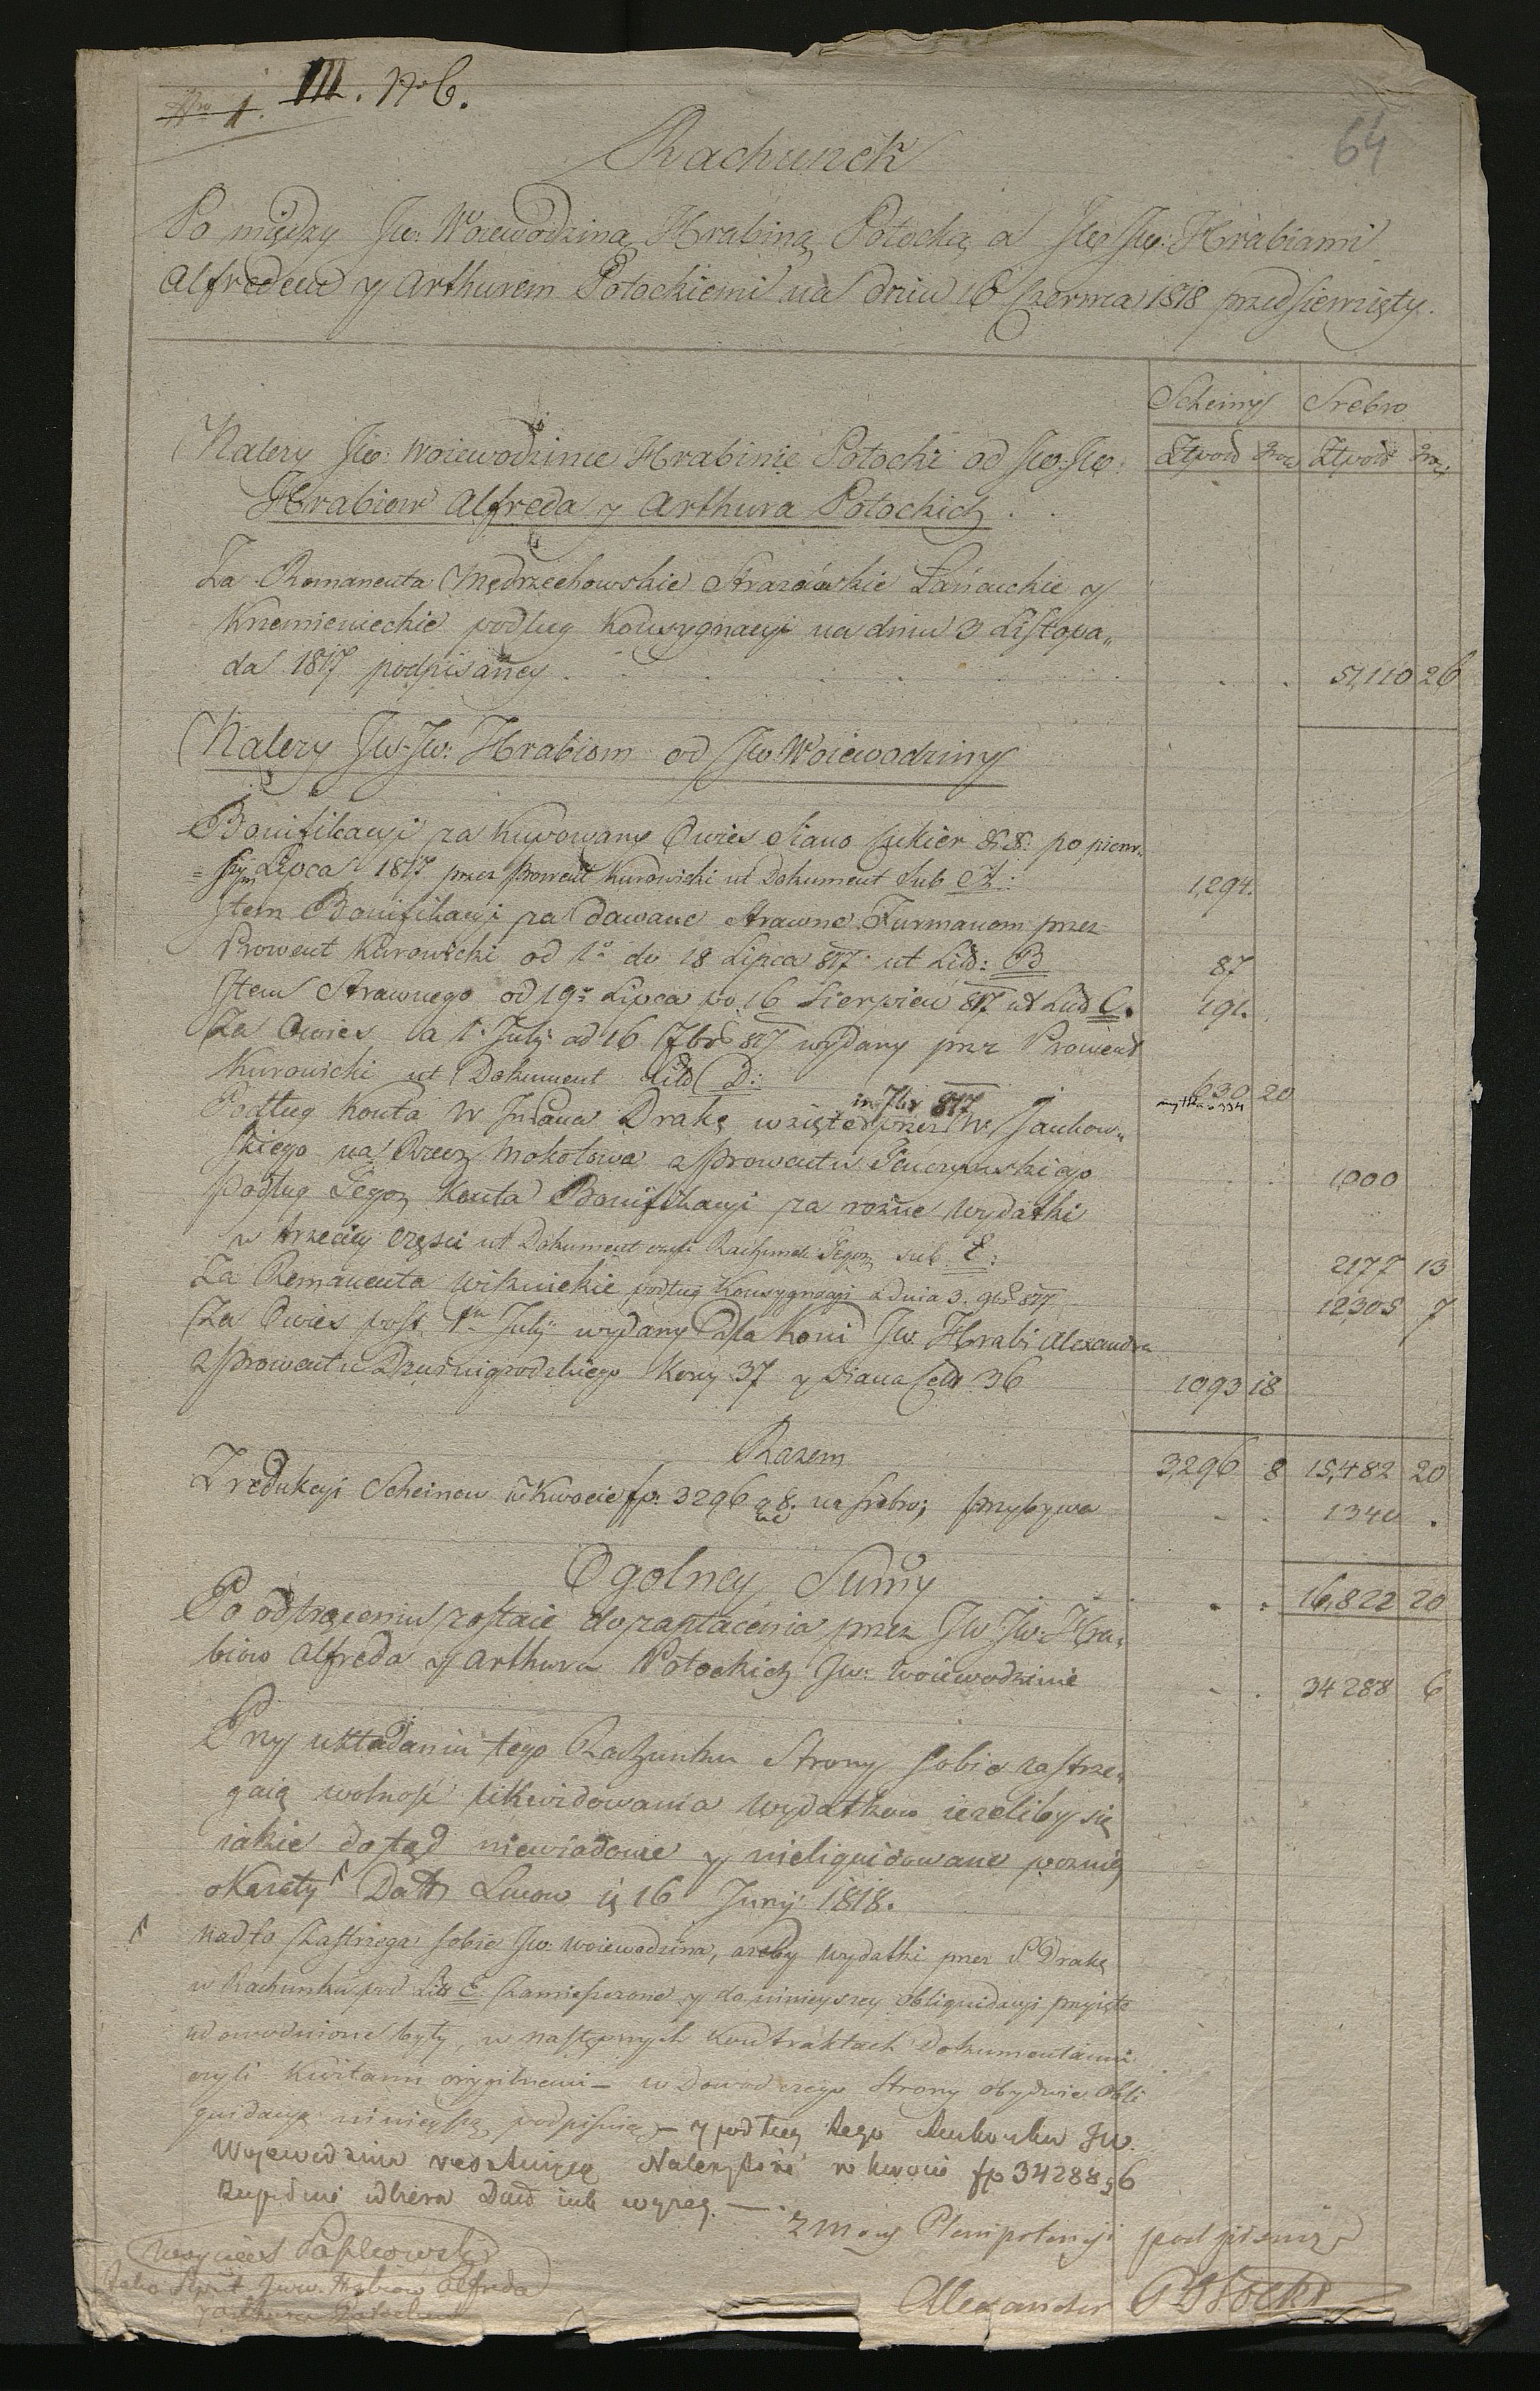 Nro 1. III. No 6.
64
Rachunek
Po między Jw: Woiewodziną Hrabiną Potocką a Jw Jw: Hrabiami
Alfredem y Arthurem Potockiemi na dniu 16 Czerwca 1818 przedsiewzięty.
Scheiny Srebro
Złpold Gro Złpold Gro
Należy Jw: Woiewodzinie Hrabinie Potocki od Jw: Jw:
Hrabiow Alfreda y Arthura Potockich
Za Remanenta Mędrzechowskie Łańcuckie y
Krzemienieckie podług Konsygnacyi na dniu 3 Listopa„
da 1817 podpisaney . 51,110 26
Należy Jw: Jw: Hrabiom od Jw Woiewodziny
Bonifikacyi za kupowany Owies Siano Cukier &&: po pierw„
szym Lipca 1817 przez Prowent Kurowicki ut Dokument Sub A: 1,294.
Item Bonifikacyi za dawane Strawne Furmanom przez
Prowent Kurowicki od 1o do 18 Lipca 817 ut Litt: B 87
Item Strawnego od 19o Lipca po 16 Sierpień 817 ut Litt C. 191.
Za Owies a 1o July ad 16 7br 817 wydany prze Prowent
Kurowicki ut Dokument Litt D: 630 20
Podług Konta W Jmci Pana Drakę wzięte in 7br 817 przez W. Jankow„
skiego na Rzecz Mokotowa z Prowentu Tenczynskiego 1000
podług Tegoż Konta Bonifikacyi za rożne wydatki
w trzeciey części ut Dokument czyli Rachunek Tegoż sub E: 2177 13
Za Remanenta Wiknickie podług Konsygnacyi z Dnia 3. 9br 817 12,305 7
Za Owies post 1m July wydany dla Koni Jw Hrabi Alexandra
z Prowentu Dzwinigrodzkiego Korcy 37 y Siana Cetn 36 1093 18
Razem 3,296 8 15,482 20
Z redukcyi Scheinow w Kwocie fp. 3296 g 8. na srebro; przybywa 1340 .
Ogolney Sumy 16,822 20
Po odtrąceniu zostaie do zapłacenia przez Jw: Jw: Hra„
biow Alfreda y Arthura Potockich Jw: Woiewodzinie 34288 6
Przy układaniu tego Rachunku Strony sobie zastrze„
gaią wolność likwidowania wydatkow ieżeliby się
iakie dotąd niewiadome y nieliquidowane poznieg
okazały Datt Lwow d 16 Juny 1818.
nadto zastrzega sobie Jw Woiewodzina, ażeby wydatki przez P Drakę
w Rachunku pod Litt E. zamieszczone y do ninieyszey obliquidacyi przyięte
udowodnione były, w następnych kontraktach Dokumentami
czyli Kwitami oryginemi – w Dowod czego Strony obydwie obli
quidacyę ninieyszą podpisuią – y podług tego Rachunku Jw.
Wojewodzina resztuiącą Należytość w kwocie fp 34288 g 6
zupełnie odbiera Datt iak wyżey. –
z mocy Plenipotencyi podpisuię
Alexander Potocki
Jako Plnpt Jww. Hrabiow Alfreda
y Arthura Potockich